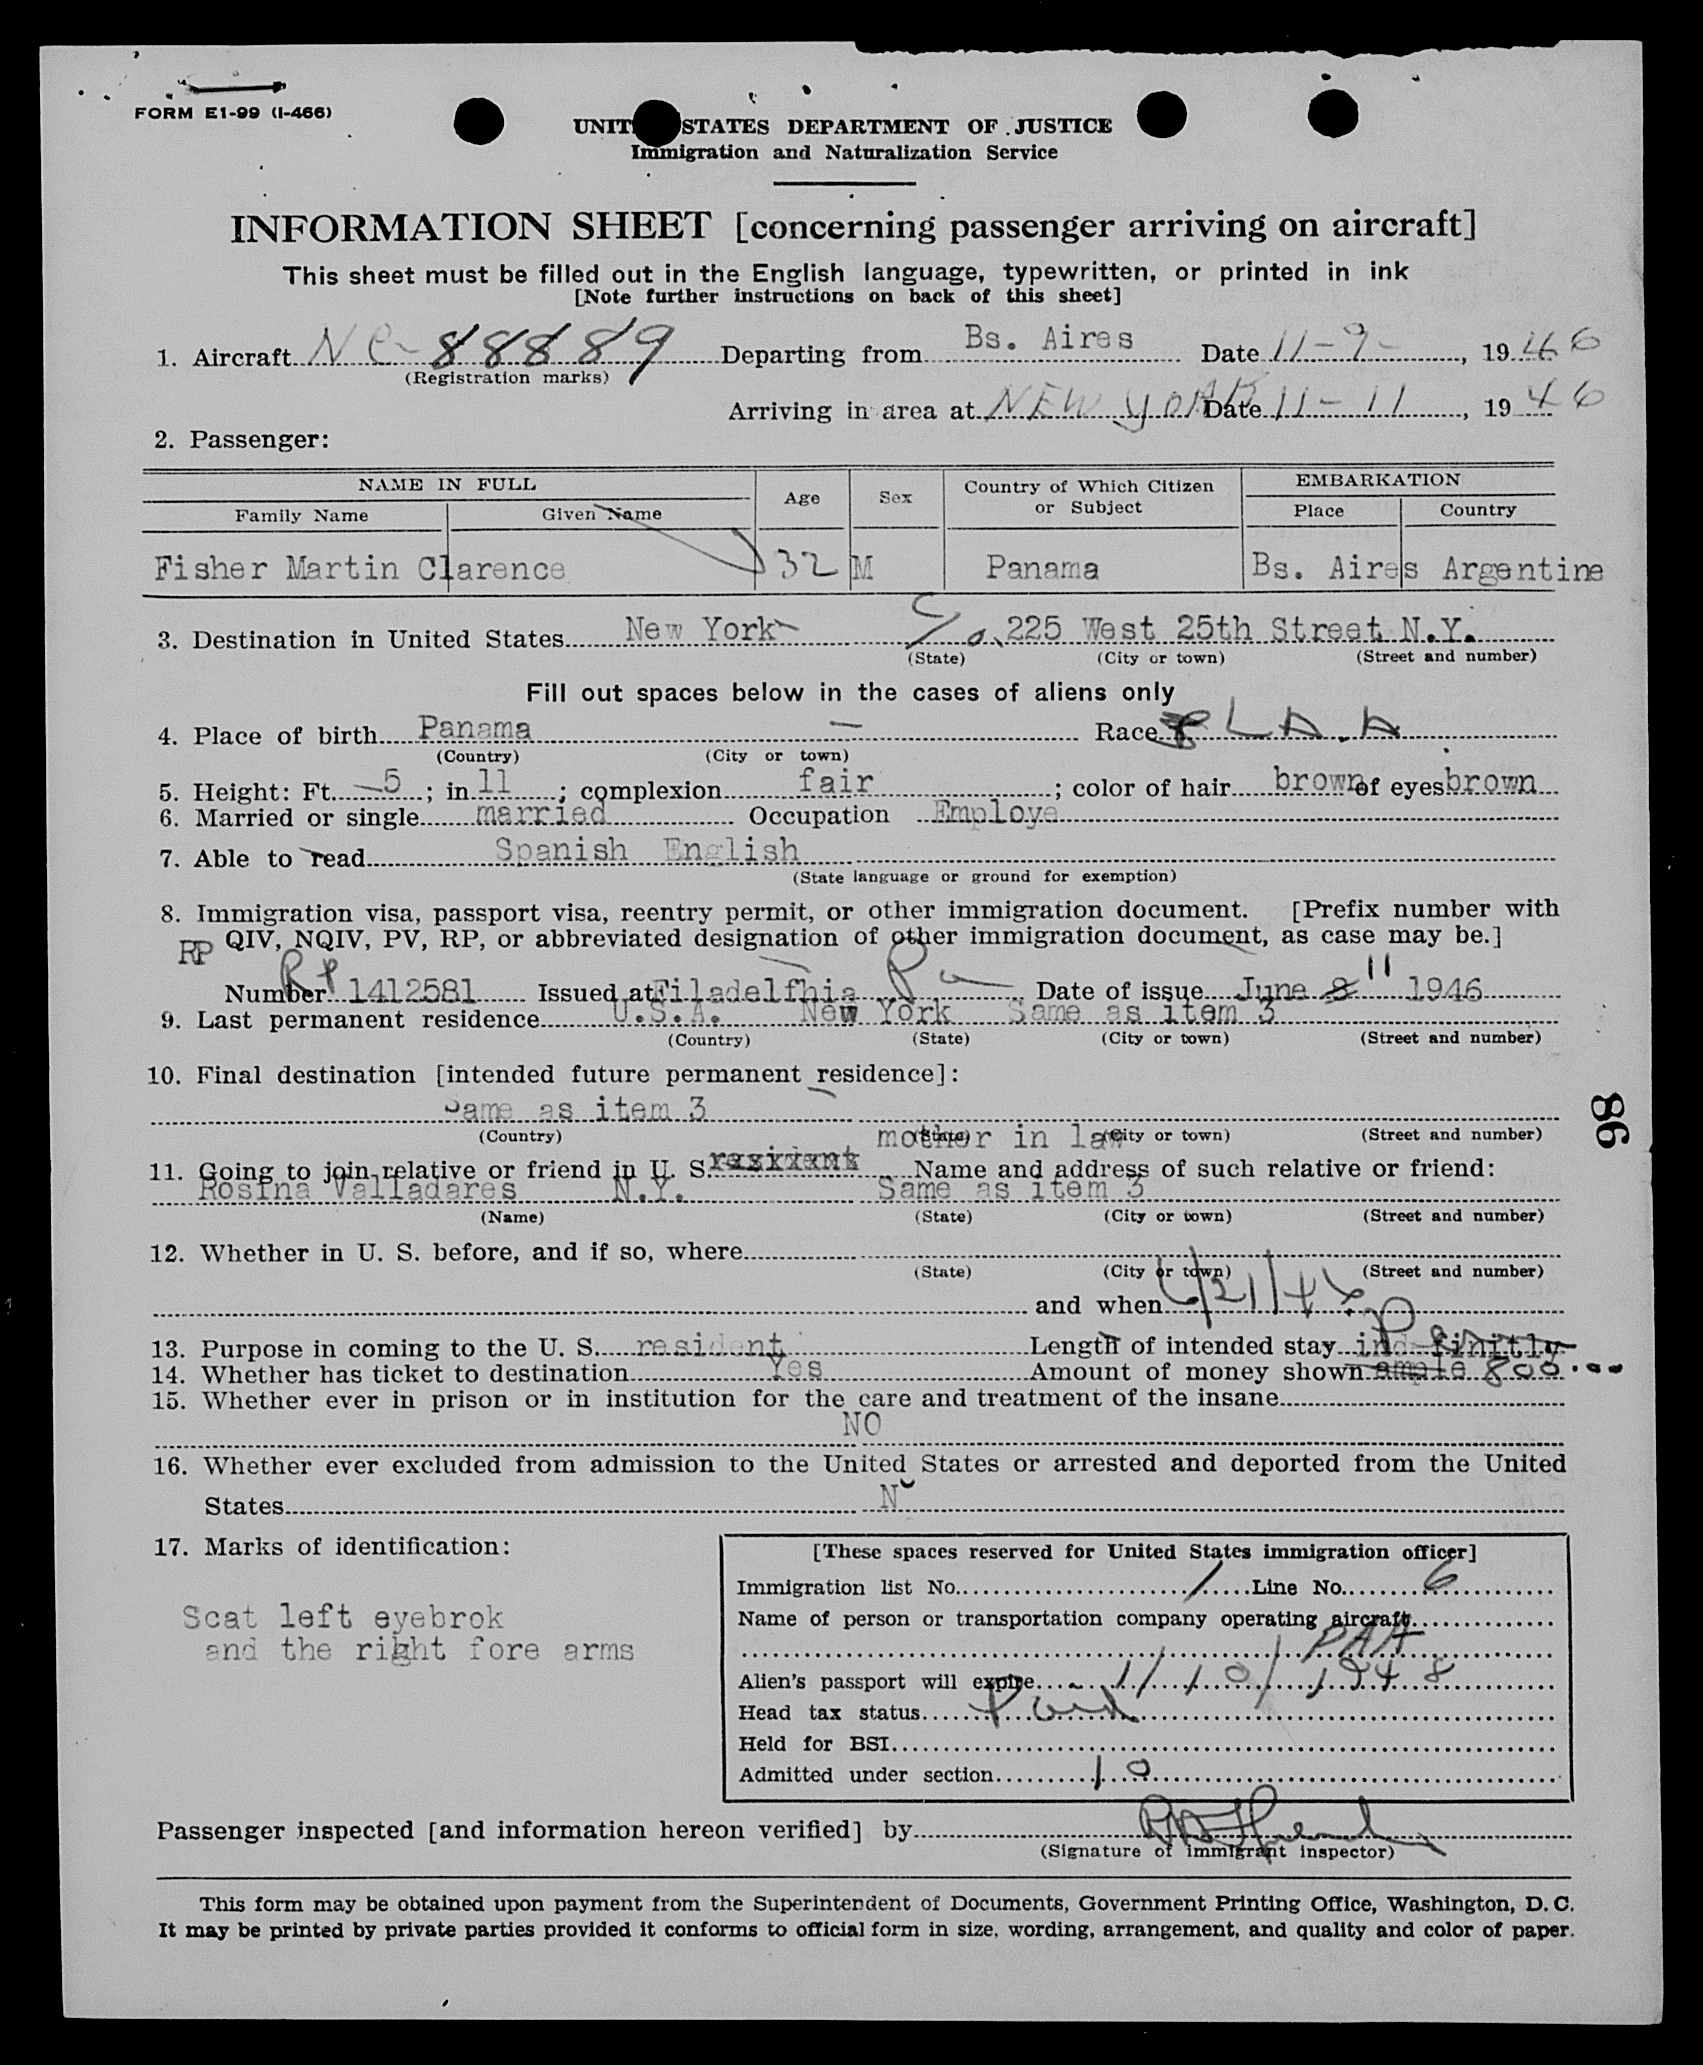 FORM E1-99 (I-466)
UNITED STATES DEPARTMENT OF JUSTICE
Immigration and Naturalization Service
INFORMATION SHEET [concerning passenger arriving on aircraft]
This sheet must be filled out in the English language, typewritten, or printed in ink
[Note further instructions on back of this sheet]
1. Aircraft NC-88889 Departing from Bs. Aires Date 11-9-, 1946
(Registration marks)
Arriving in area at NEW YORK Date 11-11, 1946
2. Passenger:
NAME IN FULL Age Sex Country of Which Citizen or Subject EMBARKATION
Family Name Given Name Place Country
Fisher Martin Clarence 32 M Panama Bs. Aires Argentine
3. Destination in United States New York C/o. 225 West 25th Street N.Y.
(State) (City or town) (Street and number)
Fill out spaces below in the cases of aliens only
4. Place of birth Panama — Race LA.A
(Country) (City or town)
5. Height: Ft. 5; in. 11; complexion fair; color of hair brown of eyes brown
6. Married or single married Occupation Employe
7. Able to read Spanish English
(State language or ground for exemption)
8. Immigration visa, passport visa, reentry permit, or other immigration document. [Prefix number with
RP QIV, NQIV, PV, RP, or abbreviated designation of other immigration document, as case may be.]
Number RP 1412581 Issued at Filadelfhia Pa Date of issue June 8 11 1946
9. Last permanent residence U.S.A. New York Same as item 3
(Country) (State) (City or town) (Street and number)
10. Final destination [intended future permanent residence]:
Same as item 3
(Country) (State) (City or town) (Street and number)
mother in law
11. Going to join relative or friend in U. S. Name and address of such relative or friend:
Rosina Valladares N.Y. Same as item 3
(Name) (State) (City or town) (Street and number)
12. Whether in U. S. before, and if so, where
(State) (City or town) (Street and number)
and when 6/21/46
13. Purpose in coming to the U. S. resident Length of intended stay indefinitly
14. Whether has ticket to destination Yes Amount of money shown ample 800.00
15. Whether ever in prison or in institution for the care and treatment of the insane
NO
16. Whether ever excluded from admission to the United States or arrested and deported from the United
States No
17. Marks of identification:
Scat left eyebrok
and the right fore arms
[These spaces reserved for United States immigration officer]
Immigration list No. 1 Line No. 6
Name of person or transportation company operating aircraft
PAA
Alien's passport will expire 1/10/1948
Head tax status Paid
Held for BSI
Admitted under section 10
Passenger inspected [and information hereon verified] by
(Signature of immigrant inspector)
This form may be obtained upon payment from the Superintendent of Documents, Government Printing Office, Washington, D. C.
It may be printed by private parties provided it conforms to official form in size, wording, arrangement, and quality and color of paper.
86